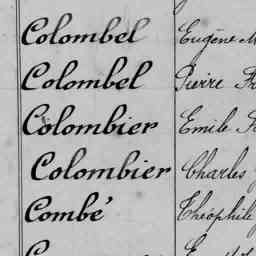 Colombel Eugène
Colombel Pierre
Colombier Emile
Colombier Charles
Combé Théophile